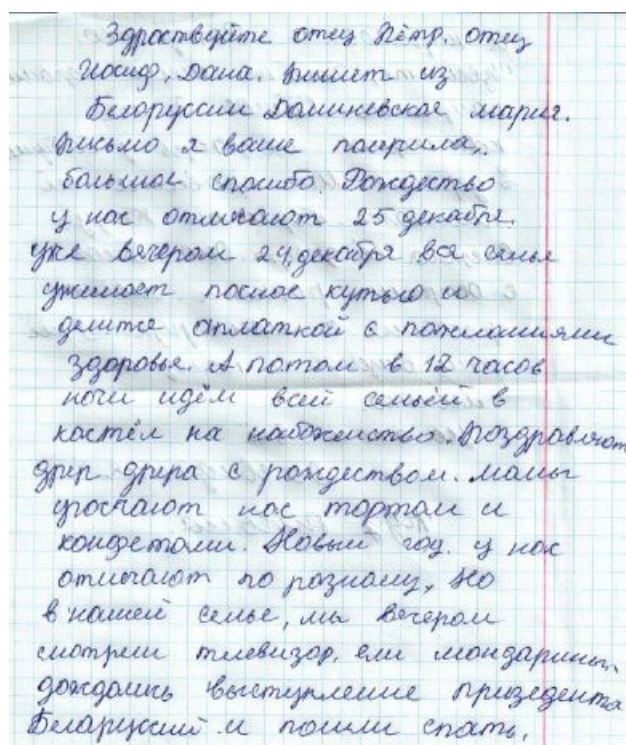 Здраствуйте отец Пётр. отец
Иосиф, Дана. Пишет из
Белоруссии Далиневская мария.
Письмо я ваше получила,
большое спасибо. Рождество
у нас отмечают 25 декабря.
уже вечером 24 декабря вся семья
ужинает поснае кутью со
делится аплаткой с пожеланиями
здоровья. А потом в 12 часов
ночи идём всей семьёй в
костёл на набоженство. Поздравляют
друг друга с рождеством. мамы
угощают нас тортом и
конфетами. Новый год. у нас
отмечают по разному, Но
в нашей семье, мы вечером
смотрели телевизор, ели мандарины,
дождались выступление призедента
Беларуссий и пошли спать.